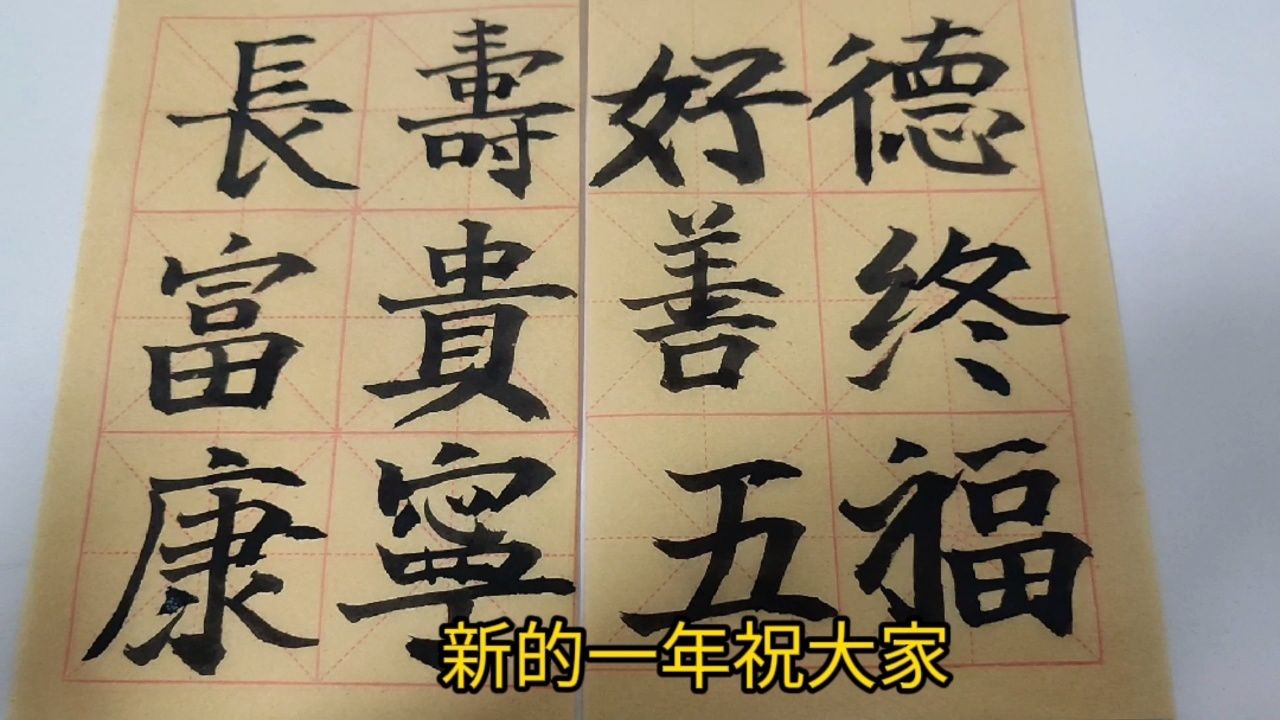 長壽好德
富貴善终
康寧五福
新的一年祝大家